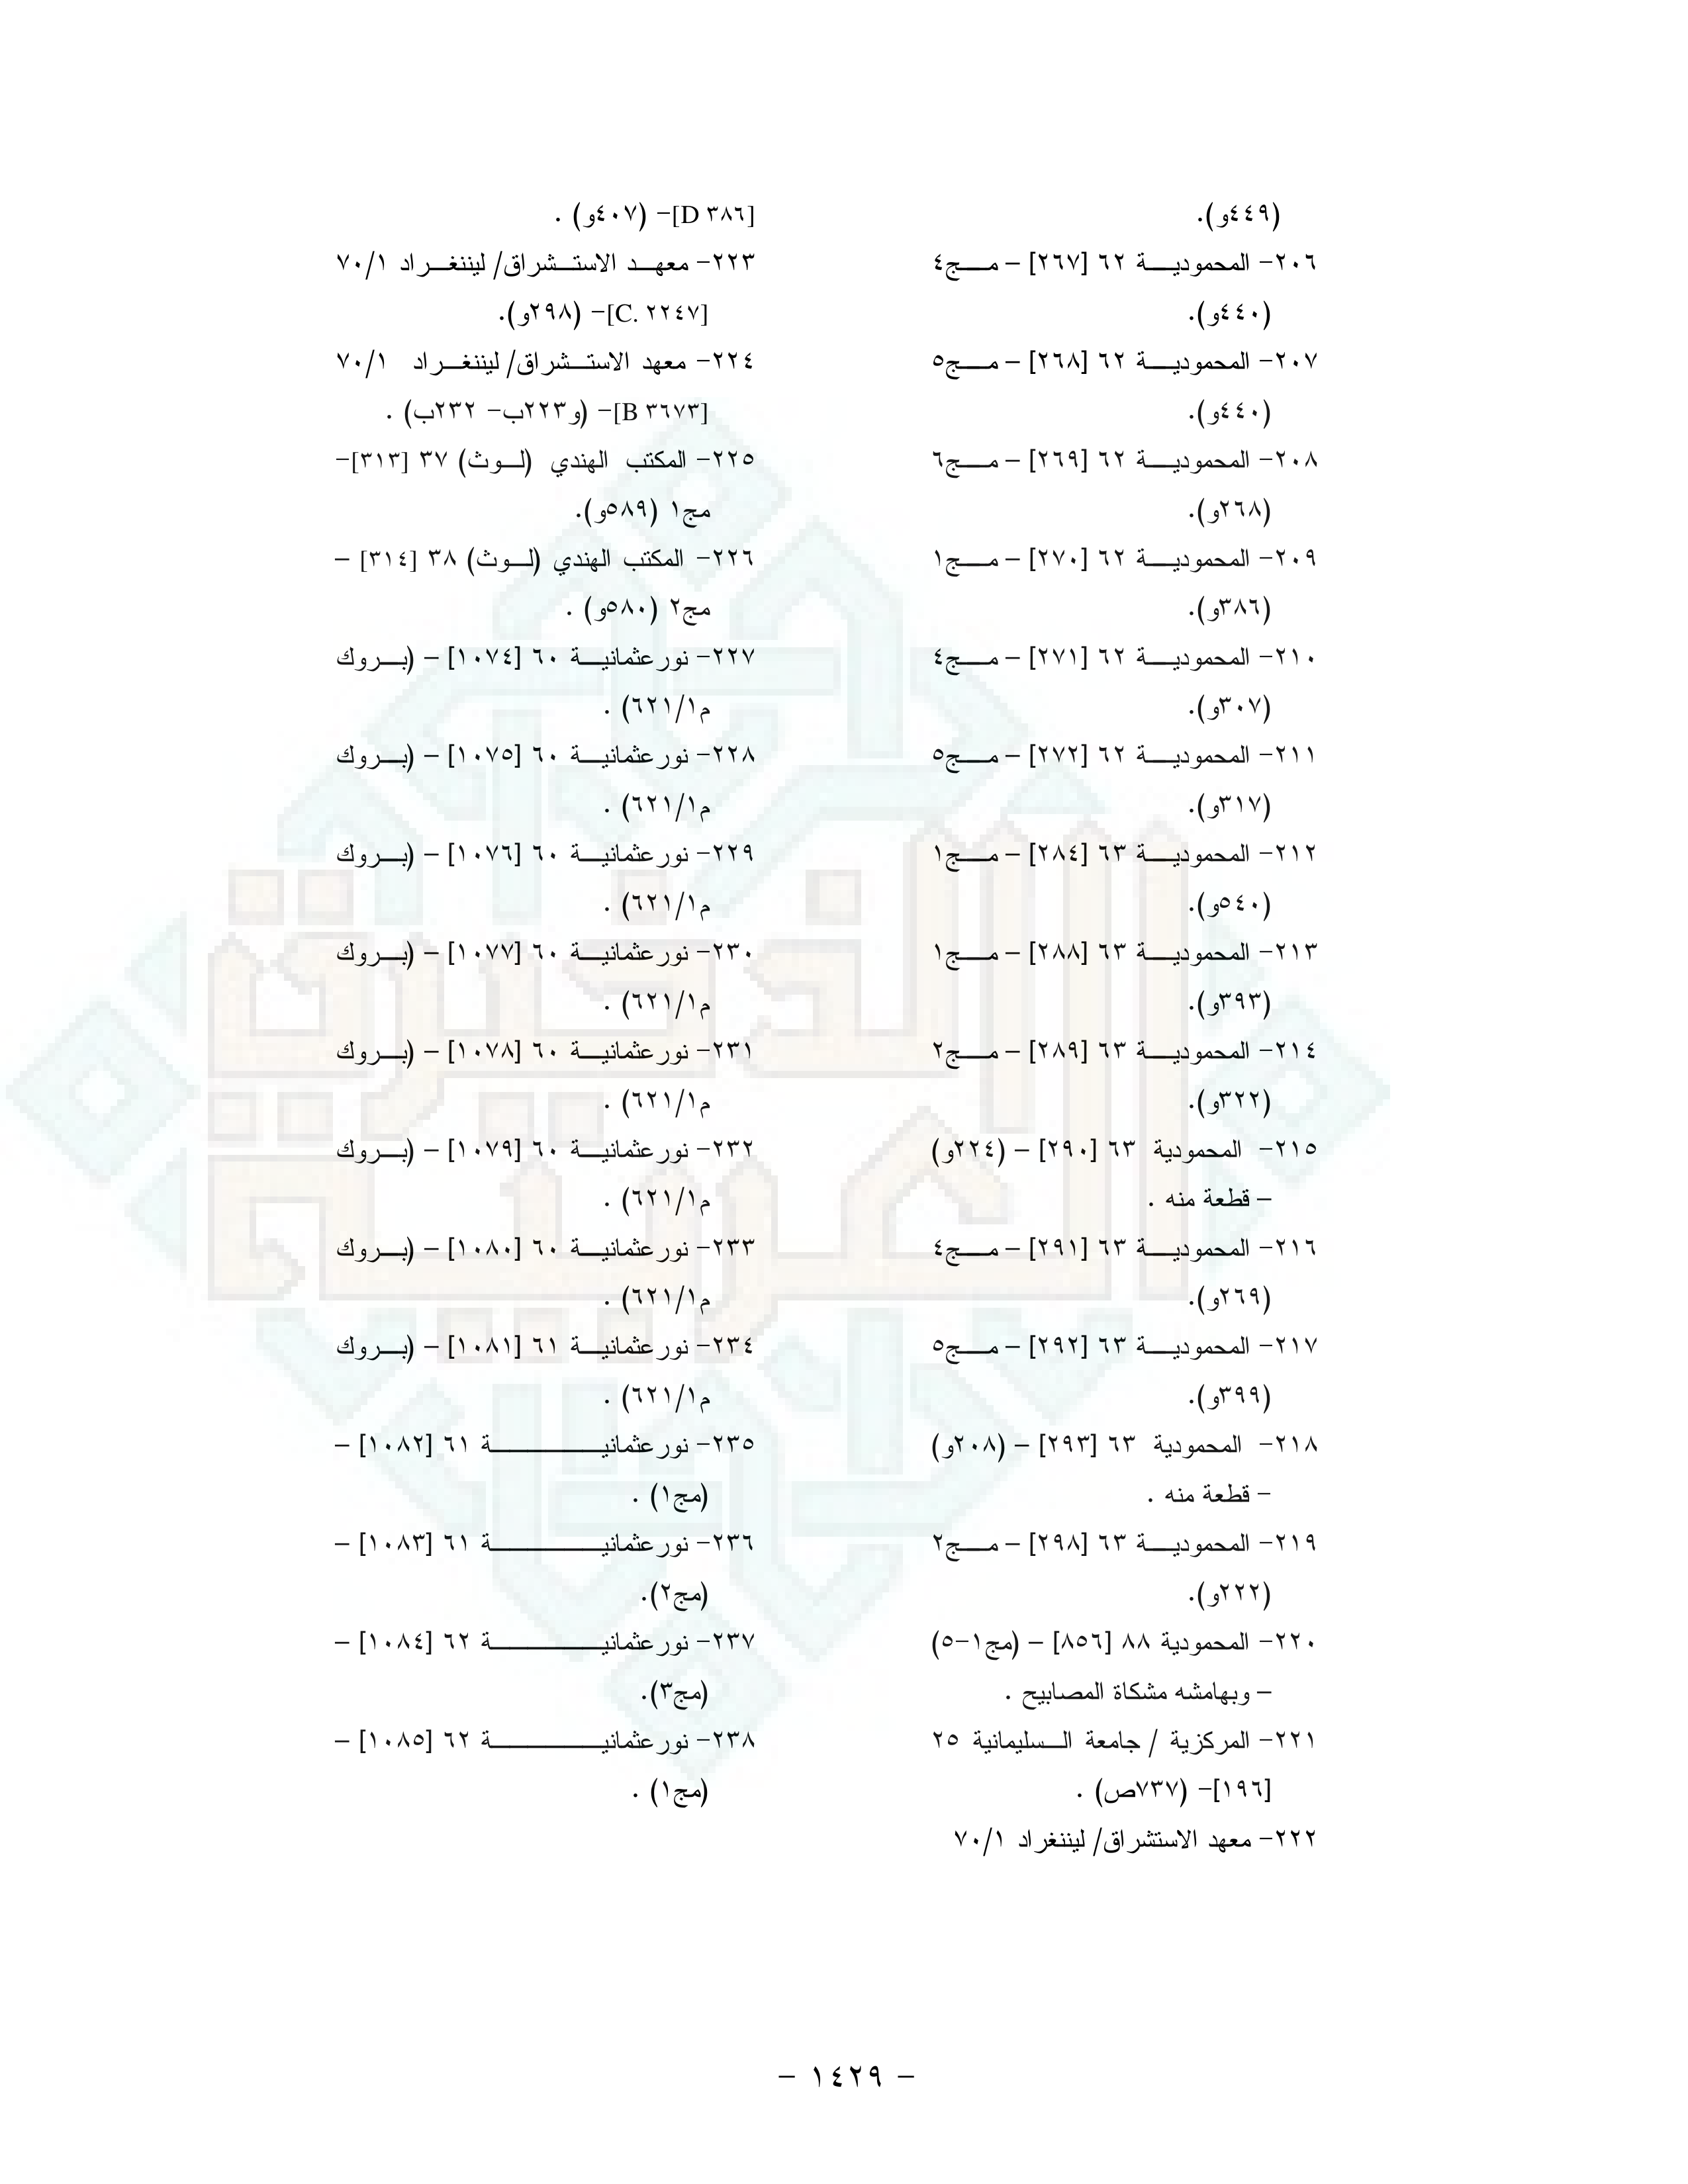 (٤٤٩و).
٢٠٦- المحمودية ٦٢ [٢٦٧] – مج٤
(٤٤٠و).
٢٠٧- المحمودية ٦٢ [٢٦٨] – مج٥
(٤٤٠و).
٢٠٨- المحمودية ٦٢ [٢٦٩] – مج٦
(٢٦٨و).
٢٠٩- المحمودية ٦٢ [٢٧٠] – مج١
(٣٨٦و).
٢١٠- المحمودية ٦٢ [٢٧١] – مج٤
(٣٠٧و).
٢١١- المحمودية ٦٢ [٢٧٢] – مج٥
(٣١٧و).
٢١٢- المحمودية ٦٣ [٢٨٤] – مج١
(٥٤٠و).
٢١٣- المحمودية ٦٣ [٢٨٨] – مج١
(٣٩٣و).
٢١٤- المحمودية ٦٣ [٢٨٩] – مج٢
(٣٢٢و).
٢١٥- المحمودية ٦٣ [٢٩٠] – (٢٢٤و)
– قطعة منه .
٢١٦- المحمودية ٦٣ [٢٩١] – مج٤
(٢٦٩و).
٢١٧- المحمودية ٦٣ [٢٩٢] – مج٥
(٣٩٩و).
٢١٨- المحمودية ٦٣ [٢٩٣] – (٢٠٨و)
- قطعة منه .
٢١٩- المحمودية ٦٣ [٢٩٨] – مج٢
(٢٢٢و).
٢٢٠- المحمودية ٨٨ [٨٥٦] – (مج١-٥)
– وبهامشه مشكاة المصابيح .
٢٢١- المركزية / جامعة السليمانية ٢٥
[١٩٦]- (٧٣٧ص) .
٢٢٢- معهد الاستشراق/ ليننغراد ٧٠/١
[D ٣٨٦]- (٤٠٧و) .
٢٢٣- معهد الاستشراق/ ليننغراد ٧٠/١
[C. ٢٢٤٧]- (٢٩٨و).
٢٢٤- معهد الاستشراق/ ليننغراد ٧٠/١
[B ٣٦٧٣]- (و٢٢٣ب- ٢٣٢ب) .
٢٢٥- المكتب الهندي (لوث) ٣٧ [٣١٣]-
مج١ (٥٨٩و).
٢٢٦- المكتب الهندي (لوث) ٣٨ [٣١٤] –
مج٢ (٥٨٠و) .
٢٢٧- نورعثمانية ٦٠ [١٠٧٤] – (بروك
م٦٢١/١) .
٢٢٨- نورعثمانية ٦٠ [١٠٧٥] – (بروك
م٦٢١/١) .
٢٢٩- نورعثمانية ٦٠ [١٠٧٦] – (بروك
م٦٢١/١) .
٢٣٠- نورعثمانية ٦٠ [١٠٧٧] – (بروك
م٦٢١/١) .
٢٣١- نورعثمانية ٦٠ [١٠٧٨] – (بروك
م٦٢١/١) .
٢٣٢- نورعثمانية ٦٠ [١٠٧٩] – (بروك
م٦٢١/١) .
٢٣٣- نورعثمانية ٦٠ [١٠٨٠] – (بروك
م٦٢١/١) .
٢٣٤- نورعثمانية ٦١ [١٠٨١] – (بروك
م٦٢١/١) .
٢٣٥- نورعثمانية ٦١ [١٠٨٢] –
(مج١) .
٢٣٦- نورعثمانية ٦١ [١٠٨٣] –
(مج٢).
٢٣٧- نورعثمانية ٦٢ [١٠٨٤] –
(مج٣).
٢٣٨- نورعثمانية ٦٢ [١٠٨٥] –
(مج١) .
الذخيرة
العربية
- ١٤٢٩ -